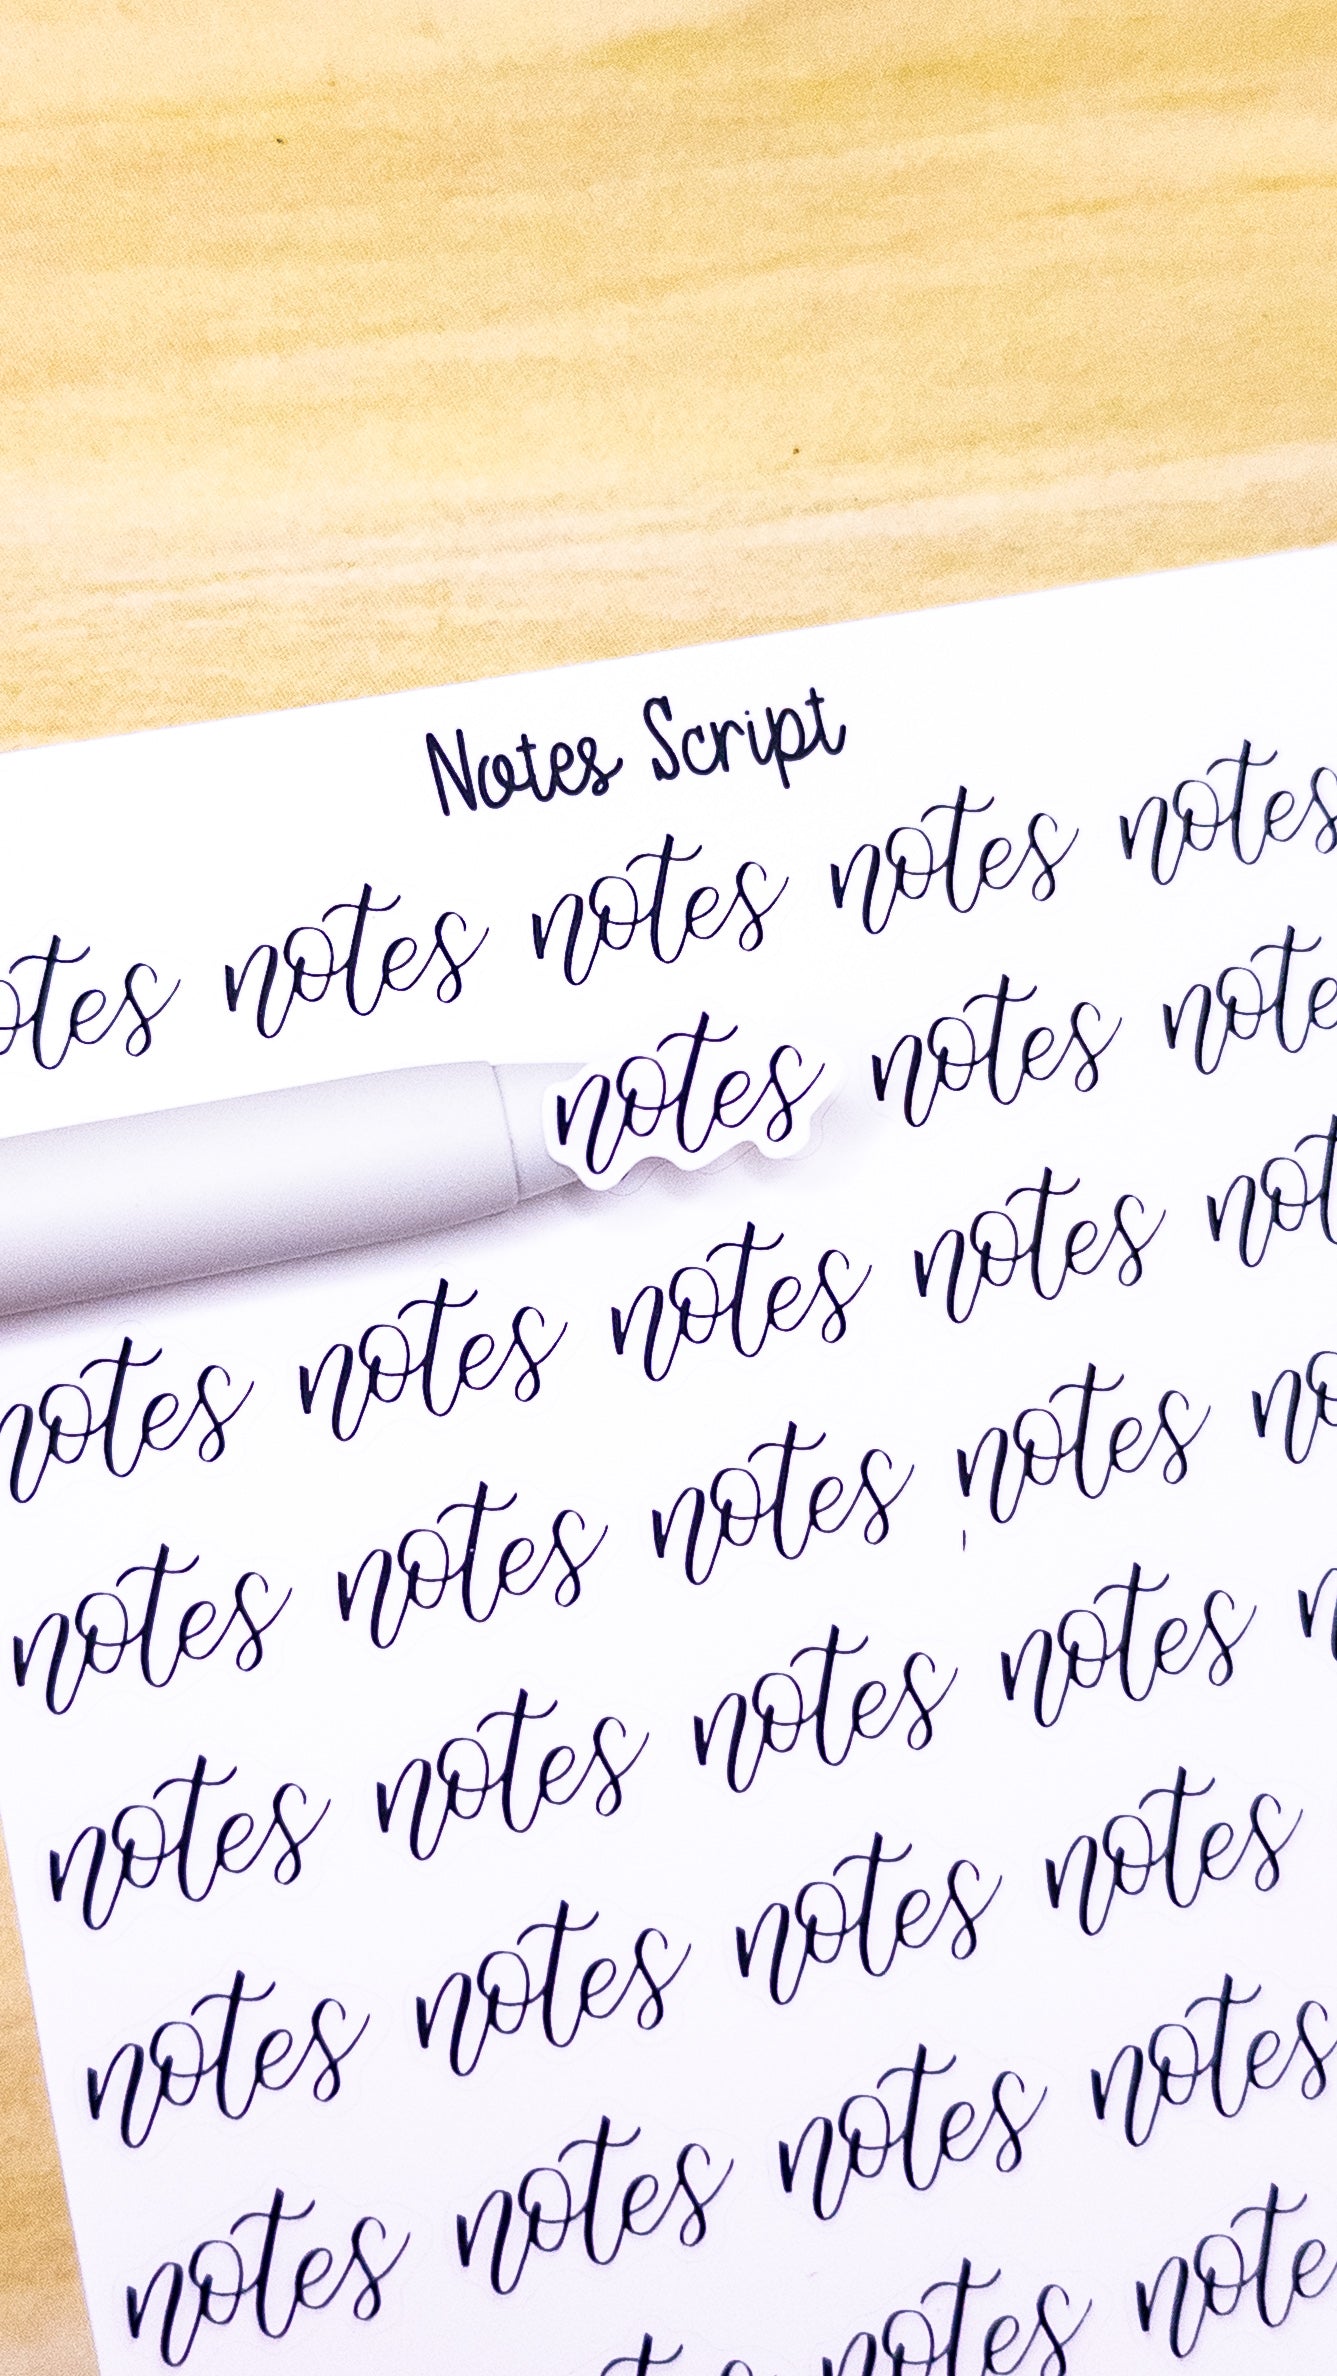 Notes Script
otes notes notes notes notes
notes notes note
notes notes notes notes not
notes notes notes notes no
notes notes notes notes n
notes notes notes notes
notes notes notes notes
notes notes note